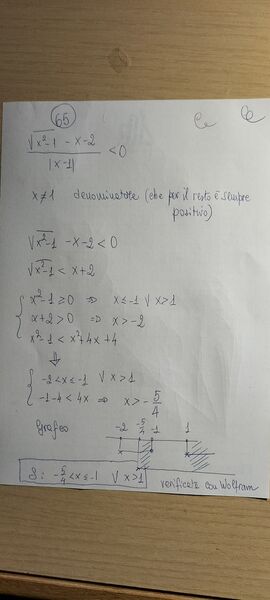 65
√x²-1 - x-2
|x-1| <0
x≠1 denominatore (che per il resto è sempre
positivo)
√x²-1 -x-2<0
√x²-1 < x+2
x²-1≥0 ⇒ x≤-1 ∨ x>1
x+2>0 ⇒ x>-2
x²-1<x²+4x+4
⇓
-2<x≤-1 ∨ x>1
-1-4<4x ⇒ x>-5/4
Grafico
-2 -5/4 -1 1
S: -5/4<x≤-1 ∨ x>1
verificata con Wolfram